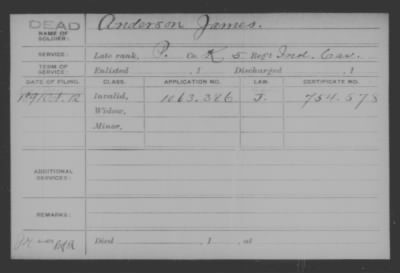 DEAD
NAME OF SOLDIER: Anderson James.
SERVICE: Late rank, P. Co. K, 5 Reg't Ind. Cav.
TERM OF SERVICE: Enlisted , 1 Discharged , 1
DATE OF FILING. CLASS. APPLICATION NO. LAW. CERTIFICATE NO.
Invalid, 1063.326 J. 754.578
Widow,
Minor,
ADDITIONAL SERVICES:
REMARKS:
Died , 1 , at